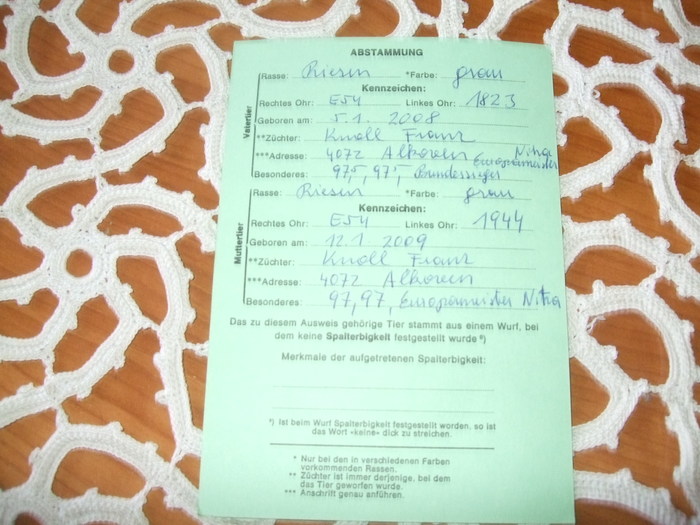 ABSTAMMUNG
Vatertier
Rasse: Riesen *Farbe: grau
Kennzeichen:
Rechtes Ohr: E54 Linkes Ohr: 1823
Geboren am: 5.1. 2008
**Züchter: Knoll Franz
***Adresse: 4072 Alkoven Nitra
Europameister
Besonderes: 97,5, 97, Bundessieger
Muttertier
Rasse: Riesen *Farbe: grau
Kennzeichen:
Rechtes Ohr: E54 Linkes Ohr: 1944
Geboren am: 12.1 2009
**Züchter: Knoll Franz
***Adresse: 4072 Alkoven
Besonderes: 97, 97, Europameister Nitra
Das zu diesem Ausweis gehörige Tier stammt aus einem Wurf, bei
dem keine Spalterbigkeit festgestellt wurde °)
Merkmale der aufgetretenen Spalterbigkeit:
°) Ist beim Wurf Spalterbigkeit festgestellt worden, so ist
das Wort «keine» dick zu streichen.
* Nur bei den in verschiedenen Farben
vorkommenden Rassen.
** Züchter ist immer derjenige, bei dem
das Tier geworfen wurde.
*** Anschrift genau anführen.